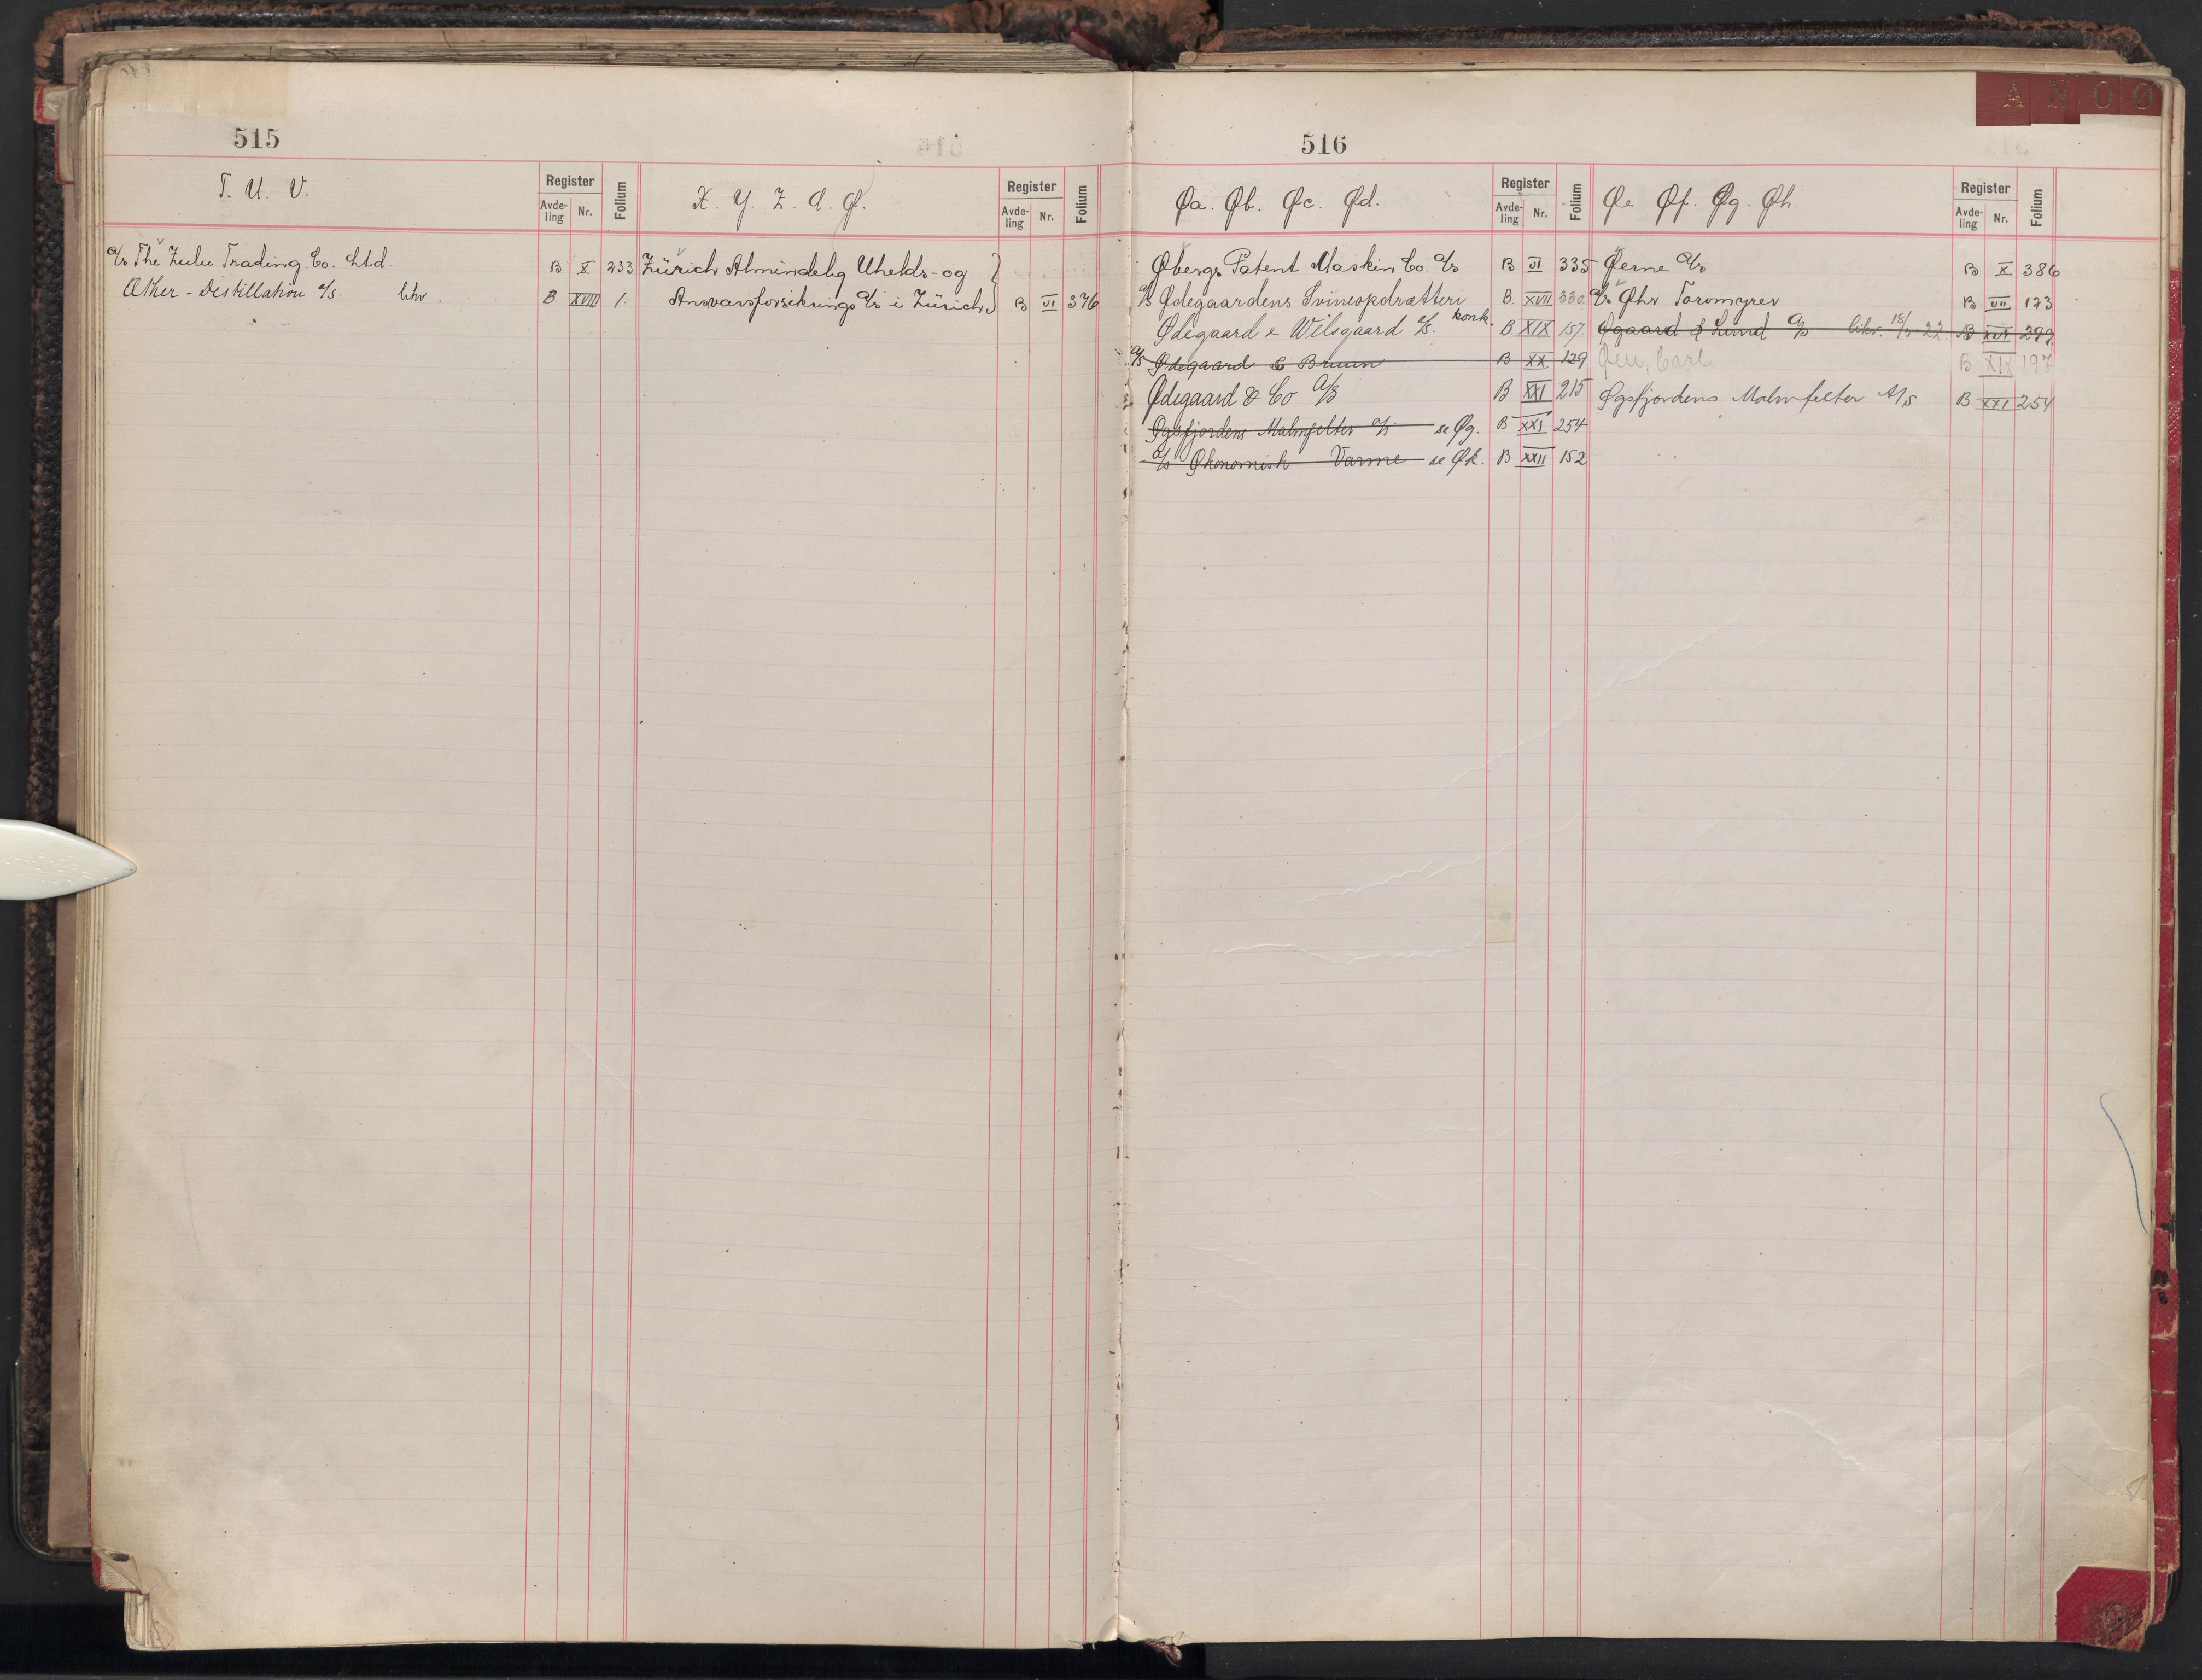 A N O Ø
515
T. U. V.
Register
Avde-
ling
Nr.
Folium
X. Y. Z. Æ. Ø.
Register
Avde-
ling
Nr.
Folium
A/s The Zulu Trading Co. Ltd. B X 233
Æther - Destillation A/S. likv. B. XVIII 1.
Zürich Almindelig Uhelds- og }
Ansvarsforsikrings A/s i Zürich B VI 376
516
Øa. Øb. Øc. Ød.
Register
Avde-
ling
Nr.
Folium
Øe Øf. Øg. Øh.
Register
Avde-
ling
Nr.
Folium
Øbergs Patent Maskin Co. A/s B VI 335
A/S Ødegaardens Svineopdrætteri B. XVII 330.
Ødegaard & Wilsgaard A/S. konk. B. XIX 157.
A/S Ødegaard & Bruun B XX 129
Ødegaard & Co A/S B XXI 215
Øgsfjordens Malmfelter A/S se Øg. B XXI 254
A/S Økonomisk Varme se Øk. B XXII 152
Øerne A/s B X 386
A/s Øhr Torvmyrer B VII 173
Øgaard & Lund A/S likv. 22. B 299
Øen, Carl B XIX 197
Øgsfjordens Malmfelter A/S B XXI 254